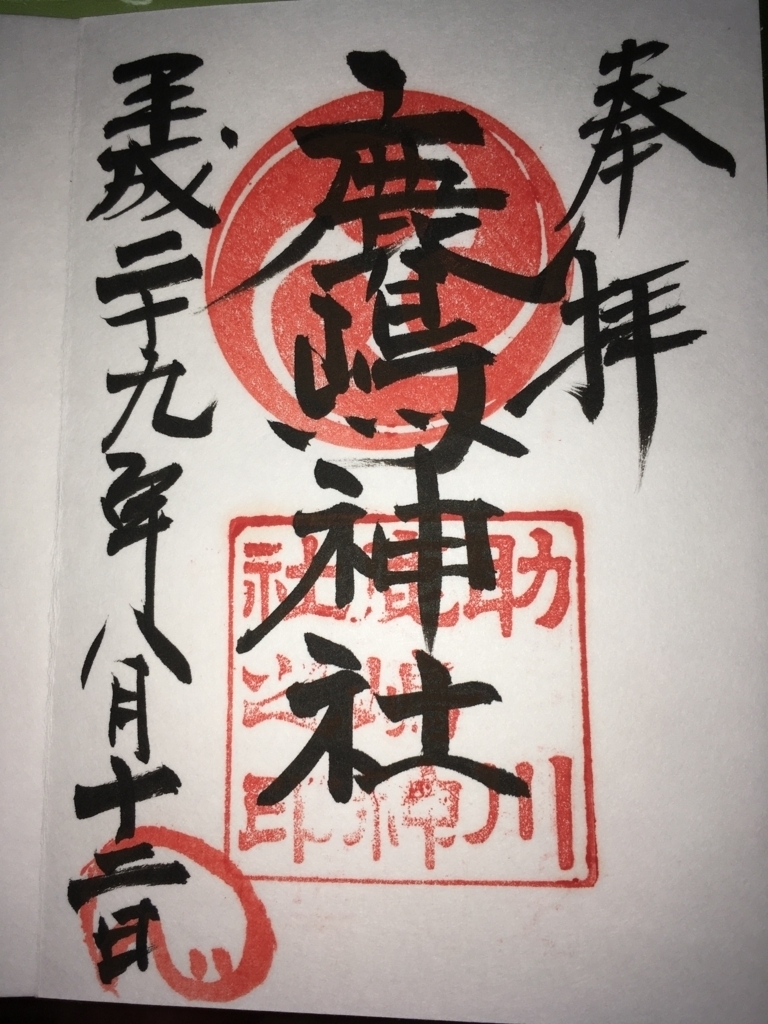 奉拝
鹿嶋神社
平成二十九年八月十二日
助川
鹿嶋神
社之印